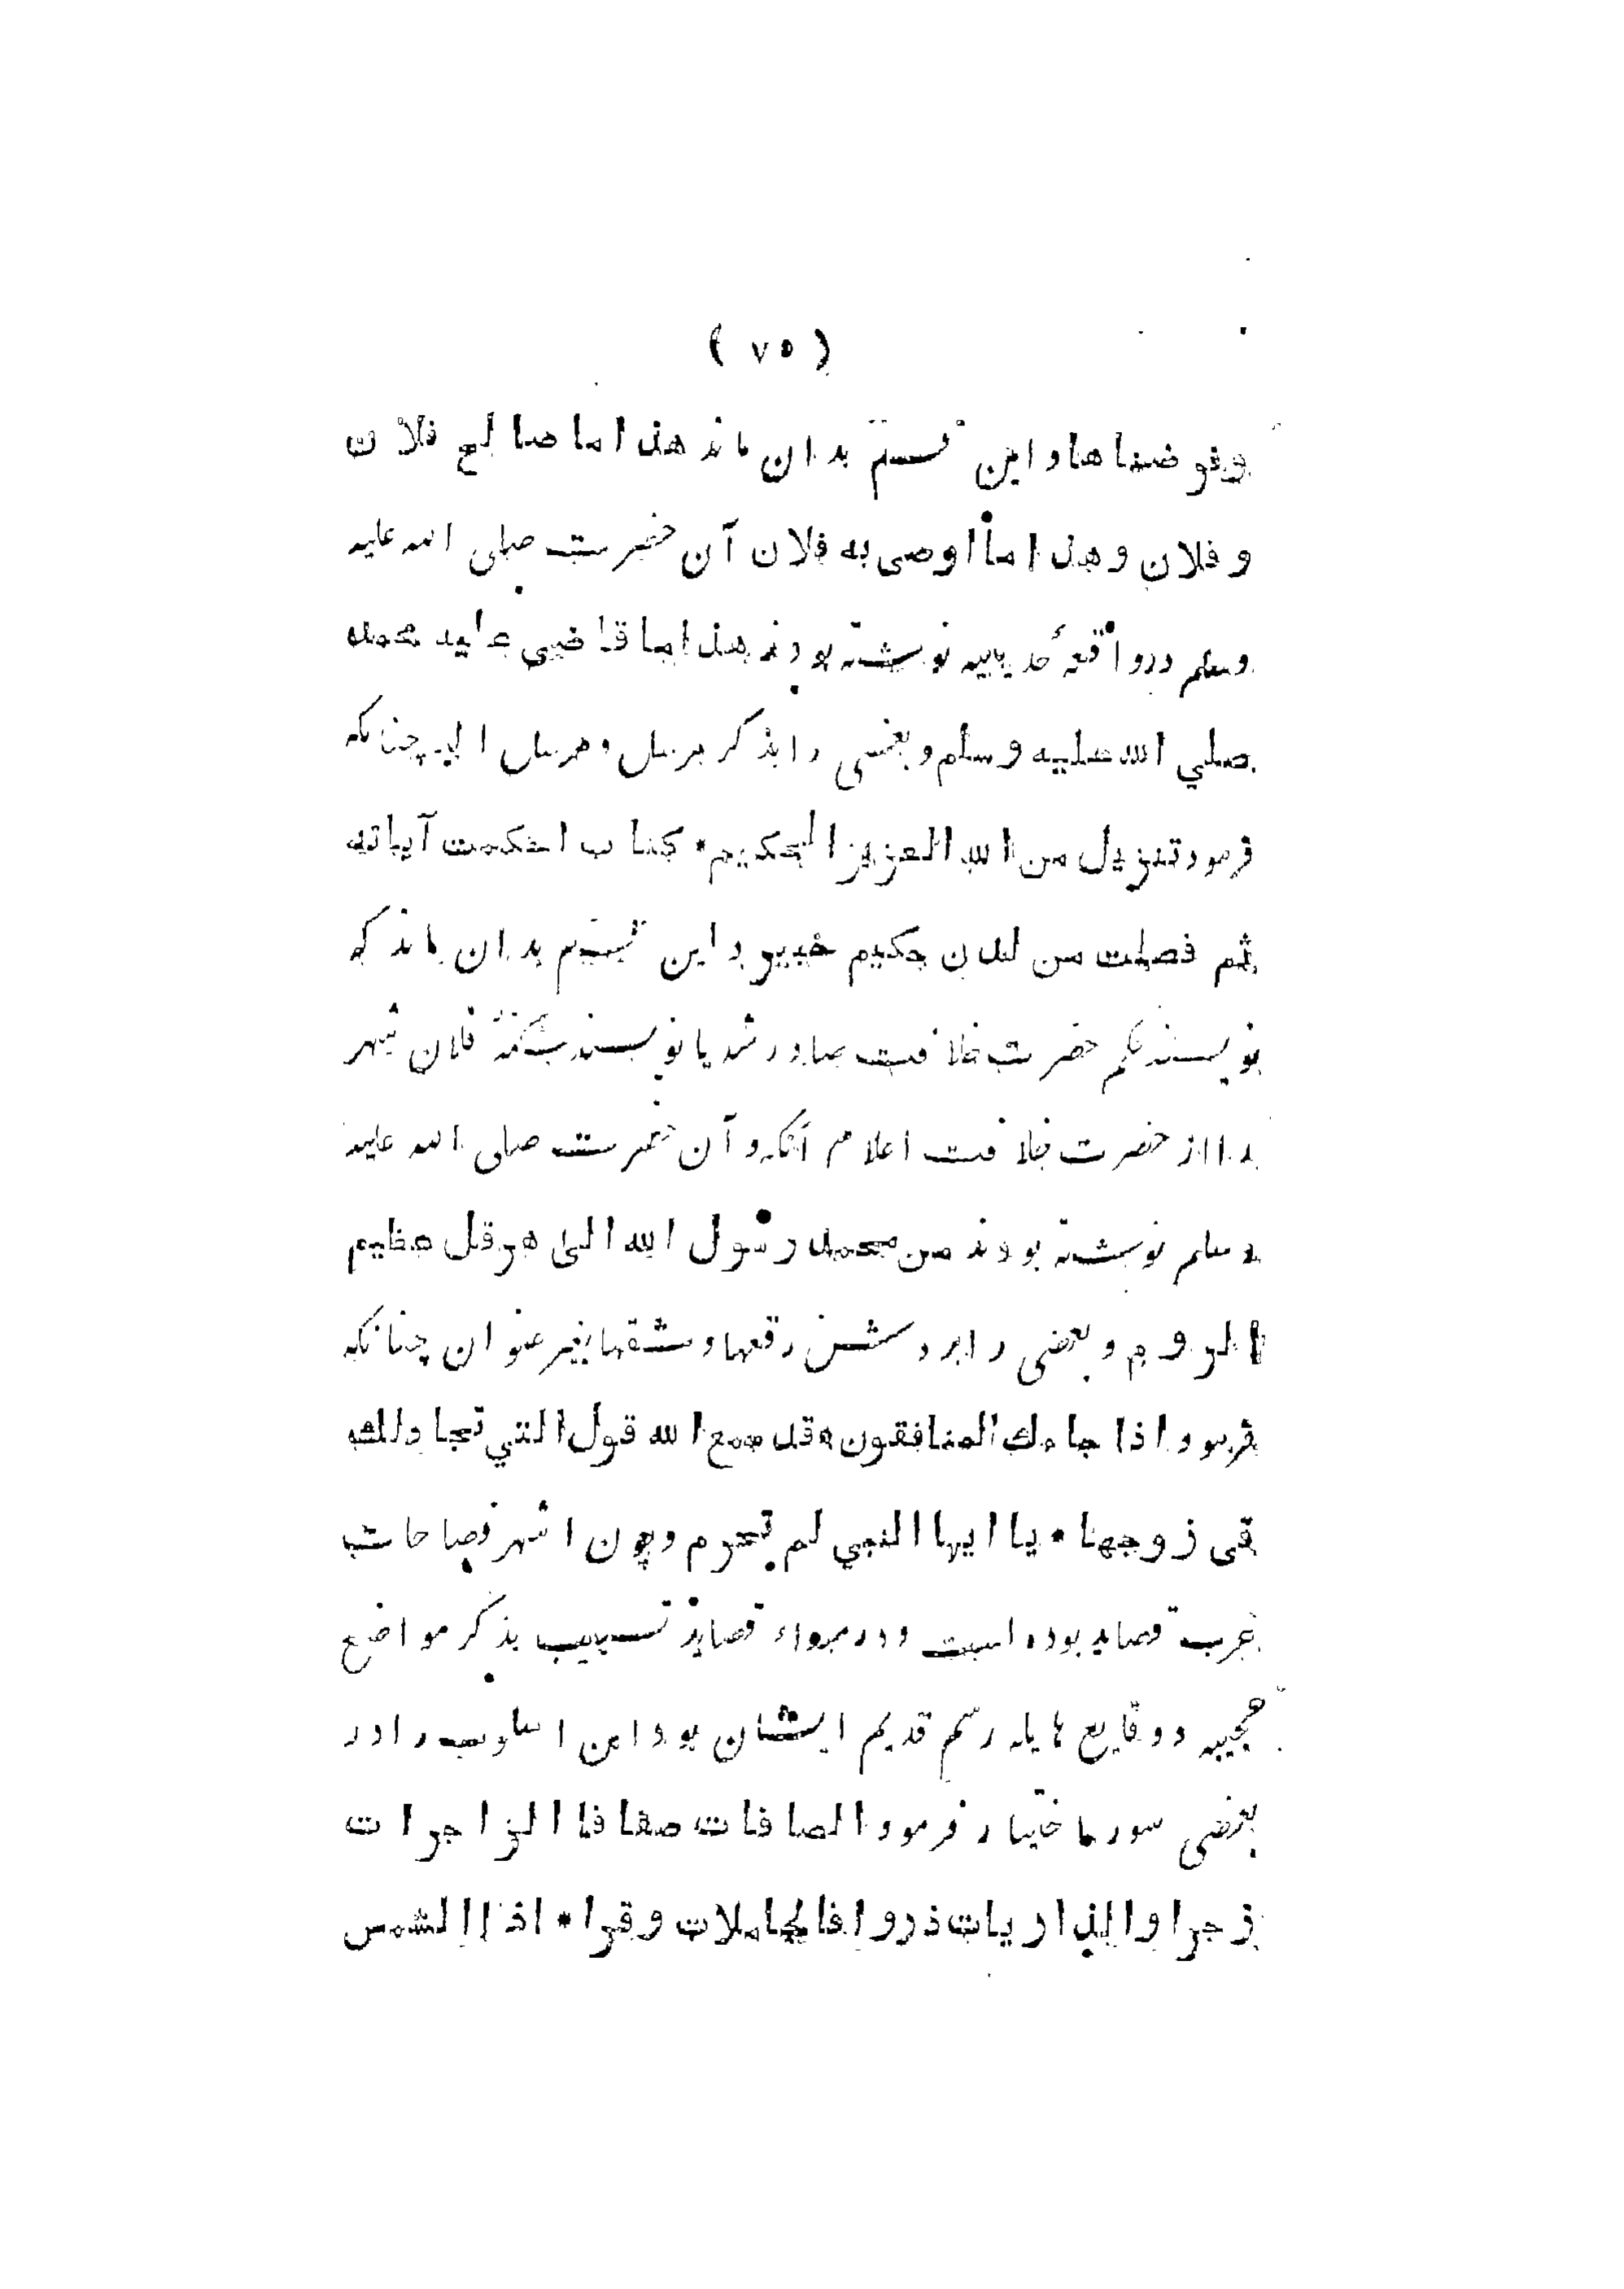 ( ٧٥ )
وفوضناها و این قسم بدان ماند هذا ما صالح فلان
و فلان و هذا ما اوصی به فلان آن حضرت صلی الله علیه
وسلم در واقعهٔ حدیبیه نوشته بودند هذا ما قاضی علیه محمد
صلي الله علیه وسلم و بعضی را بذکر مرسل و مرسل الیه چنانکه
فرمود تنزیل من الله العزیز الحکیم * کتاب احکمت آیاته
ثم فصلت من لدن حکیم خبیر و این قسم بدان ماند که
نویسند حکم حضرت خلافت صادر شد یا نویسند سکنهٔ فلان شهر
را از حضرت خلافت اعلام آنکه و آن حضرت صلی الله علیه
وسلم نوشته بودند من محمد رسول الله الی هرقل عظیم
الروم و بعضی را بر روش رقعها و شقها بغیر عنوان چنانکه
فرمود اذا جاءك المنافقون * قد سمع الله قول التي تجادلك
في زوجها * یا ایها النبي لم تحرم و چون اشهر فصاحات
عرب قصاید بوده است و در مبداء قصاید تشبیب بذکر مواضع
عجیبه و وقایع هایله رسم قدیم ایشان بود این اسلوب را در
بعضی سورها اختیار فرمود و الصافات صفا فالزاجرات
زجرا و الذاریات ذروا فالحاملات وقرا * اذا الشمس